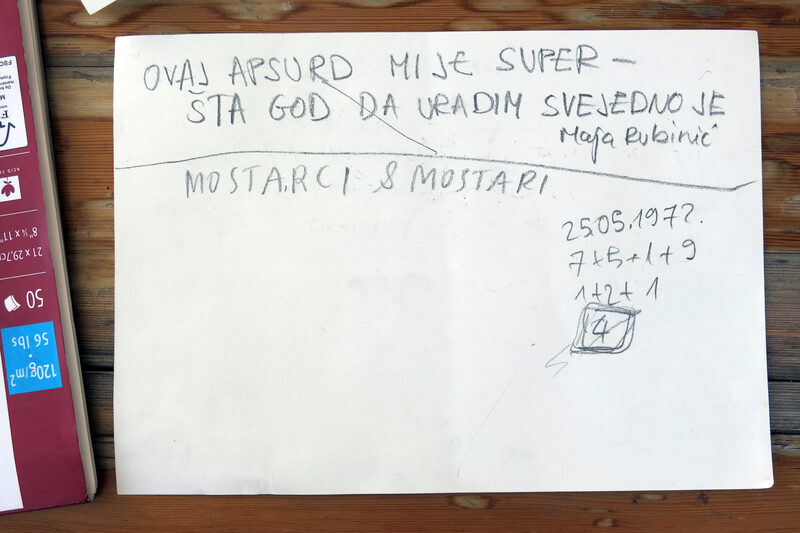 OVAJ APSURD MI JE SUPER –
ŠTA GOD DA URADIM SVEJEDNO JE
Maja Rubinić
MOSTARCI & MOSTARI
25.05.1972.
7+5+1+9
1+2+1
4
ACID
21 x 29,7c
8" ¼ x 11"
50
56 lbs
120g/m²